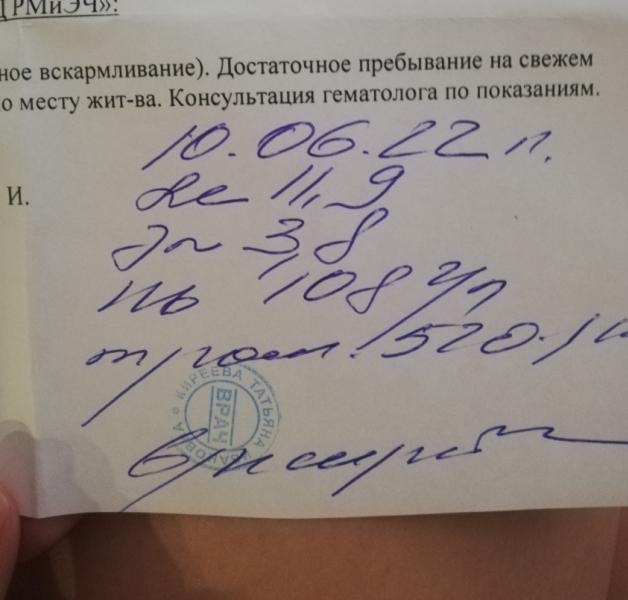 ДРМиЭЧ»:
ное вскармливание). Достаточное пребывание на свежем
о месту жит-ва. Консультация гематолога по показаниям.
И.
10.06.22 г.
Le 11,9
Эр 3,8
Нв 108 г/л
тром. 520
КИРЕЕВА ТАТЬЯНА ИВАНОВНА
ВРАЧ